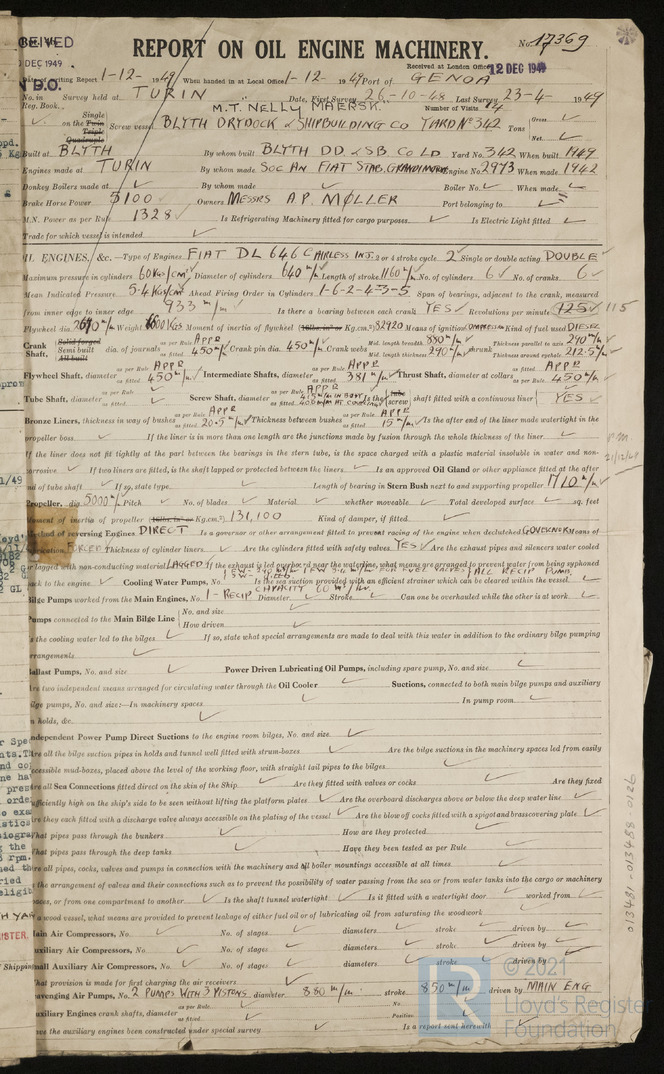 RECEIVED
DEC 1949
REPORT ON OIL ENGINE MACHINERY.
No. 17369
Received at London Office 12 DEC 1949
Date of writing Report 1-12-1949 When handed in at Local Office 1-12-1949 Port of GENOA
No. in Reg. Book. Survey held at TURIN Date, First Survey 26-10-48 Last Survey 23-4-1949
Number of Visits 14
M.T. "NELLY MAERSK"
on the Single Twin Triple Quadruple Screw vessel BLYTH DRYDOCK & SHIPBUILDING Co YARD No 342 Tons Gross Net
Built at BLYTH By whom built BLYTH DD. & SB. Co LD Yard No. 342 When built 1949
Engines made at TURIN By whom made SOC AN FIAT STAB. GRANDI MOTORI Engine No. 2973 When made 1942
Donkey Boilers made at By whom made Boiler No. When made
Brake Horse Power 5100 Owners MESSRS A.P. MØLLER Port belonging to
M.N. Power as per Rule 1328 Is Refrigerating Machinery fitted for cargo purposes. Is Electric Light fitted
Trade for which vessel is intended
OIL ENGINES, &c.—Type of Engines FIAT DL 646 C AIRLESS INJ. 2 or 4 stroke cycle 2 Single or double acting DOUBLE
Maximum pressure in cylinders 60 Kg/cm² Diameter of cylinders 640 m/m Length of stroke 1160 m/m No. of cylinders 6 No. of cranks 6
Mean Indicated Pressure 5.4 Kg/cm² Ahead Firing Order in Cylinders 1-6-2-4-3-5 Span of bearings, adjacent to the crank, measured
from inner edge to inner edge 933 m/m Is there a bearing between each crank YES Revolutions per minute 125 115
Flywheel dia. 2640 m/m Weight 1600 KGS Moment of inertia of flywheel (16lbs. in² or Kg.cm.²) 82920 Means of ignition COMPRESS Kind of fuel used DIESEL
Crank Shaft, Solid forged Semi built All built dia. of journals as per Rule APPR as fitted 450 m/m Crank pin dia. 450 m/m Crank webs Mid. length breadth 880 m/m Mid. length thickness 290 m/m shrunk Thickness parallel to axis 290 m/m Thickness around eyehole 212.5 m/m
Flywheel Shaft, diameter as per Rule APPR as fitted 450 m/m Intermediate Shafts, diameter as per Rule APPR as fitted 381 m/m Thrust Shaft, diameter at collars as per Rule APPR as fitted 450 m/m
Tube Shaft, diameter as per Rule as fitted Screw Shaft, diameter as per Rule APPR as fitted 415 m/m IN BODY Is the tube screw shaft fitted with a continuous liner YES
Bronze Liners, thickness in way of bushes as per Rule APPR as fitted 20.5 m/m Thickness between bushes as per Rule APPR as fitted 15 m/m Is the after end of the liner made watertight in the
propeller boss If the liner is in more than one length are the junctions made by fusion through the whole thickness of the liner
If the liner does not fit tightly at the part between the bearings in the stern tube, is the space charged with a plastic material insoluble in water and non-
corrosive If two liners are fitted, is the shaft lapped or protected between the liners Is an approved Oil Gland or other appliance fitted at the after
end of tube shaft If so, state type Length of bearing in Stern Bush next to and supporting propeller 1710 m/m
Propeller, dia 5000 m/m Pitch No. of blades Material whether moveable Total developed surface sq. feet
Moment of inertia of propeller (16lbs. in² or Kg.cm.²) 131,100 Kind of damper, if fitted
Method of reversing Engines DIRECT Is a governor or other arrangement fitted to prevent racing of the engine when declutched GOVERNOR Means of
lubrication FORCED Thickness of cylinder liners Are the cylinders fitted with safety valves YES Are the exhaust pipes and silencers water cooled
or lagged with non-conducting material LAGGED If the exhaust is led overboard near the waterline, what means are arranged to prevent water from being syphoned
back to the engine Cooling Water Pumps, No. Is the sea suction provided with an efficient strainer which can be cleared within the vessel
Bilge Pumps worked from the Main Engines, No. 1 - RECIP CAPACITY 60 m³/Hr Diameter Stroke Can one be overhauled while the other is at work
Pumps connected to the Main Bilge Line No. and size How driven
Is the cooling water led to the bilges If so, state what special arrangements are made to deal with this water in addition to the ordinary bilge pumping
arrangements
Ballast Pumps, No. and size Power Driven Lubricating Oil Pumps, including spare pump, No. and size
Are two independent means arranged for circulating water through the Oil Cooler Suctions, connected to both main bilge pumps and auxiliary
bilge pumps, No. and size:—In machinery spaces In pump room
In holds, &c.
Independent Power Pump Direct Suctions to the engine room bilges, No. and size
Are all the bilge suction pipes in holds and tunnel well fitted with strum-boxes Are the bilge suctions in the machinery spaces led from easily
accessible mud-boxes, placed above the level of the working floor, with straight tail pipes to the bilges
Are all Sea Connections fitted direct on the skin of the Ship Are they fitted with valves or cocks Are they fixed
sufficiently high on the ship's side to be seen without lifting the platform plates Are the overboard discharges above or below the deep water line
Are they each fitted with a discharge valve always accessible on the plating of the vessel Are the blow off cocks fitted with a spigot and brass covering plate
What pipes pass through the bunkers How are they protected
What pipes pass through the deep tanks Have they been tested as per Rule
Are all pipes, cocks, valves, and pumps in connection with the machinery and all boiler mountings accessible at all times
Is the arrangement of valves and their connections such as to prevent the possibility of water passing from the sea or from water tanks into the cargo or machinery
spaces, or from one compartment to another Is the shaft tunnel watertight Is it fitted with a watertight door worked from
If a wood vessel, what means are provided to prevent leakage of either fuel oil or of lubricating oil from saturating the woodwork
Main Air Compressors, No. No. of stages diameters stroke driven by
Auxiliary Air Compressors, No. No. of stages diameters stroke driven by
Small Auxiliary Air Compressors, No. No. of stages diameters stroke driven by
What provision is made for first charging the air receivers
Scavenging Air Pumps, No. 2 PUMPS WITH 3 PISTONS diameter 880 m/m stroke 850 m/m driven by MAIN ENG
Auxiliary Engines crank shafts, diameter as per Rule as fitted No. Position
Have the auxiliary engines been constructed under special survey Is a report sent herewith
21/12/49
013481-013488-0126
© 2021
Lloyd's Register
Foundation
LR